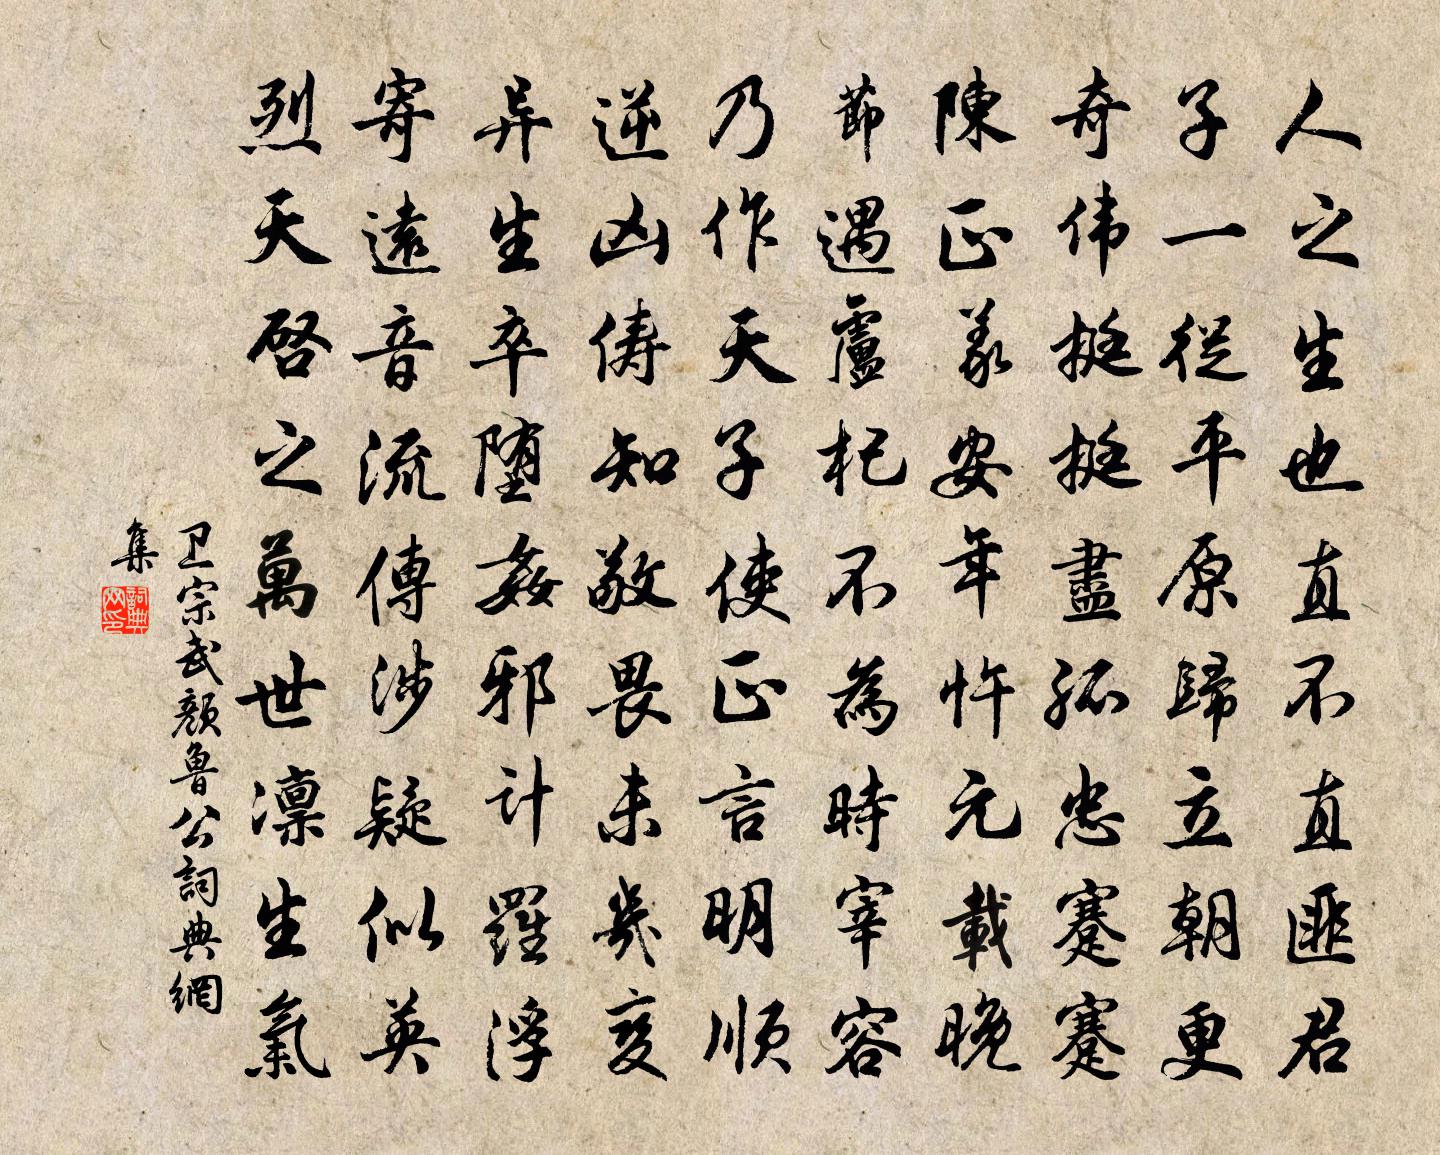 人之生也直不直匪君
子一從平原歸立朝更
奇伟挺挺盡孤忠蹇蹇
陳正義安年忤元載晚
節遇盧杞不為時宰容
乃作天子使正言明順
逆凶俦知敬畏未幾变
异生卒堕姦邪计羅浮
寄遠音流傳涉疑似英
烈天啓之萬世凛生氣
卫宗武颜魯公詞典網
集
詞典网印